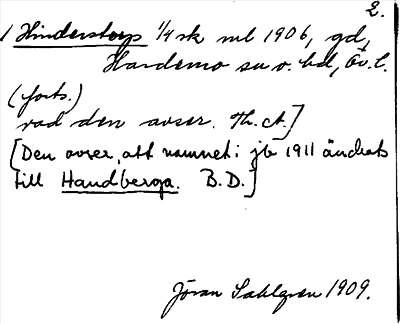 2.
1 Hinderstorp 1/4 sk ml 1906, gd,
Hardemo sn o. hd, Ör. l.
(forts.)
vad den avser. Th. A.]
[Den avser, att namnet i jb 1911 ändrats
till Handberga. B.D.]
Jöran Sahlgren 1909.